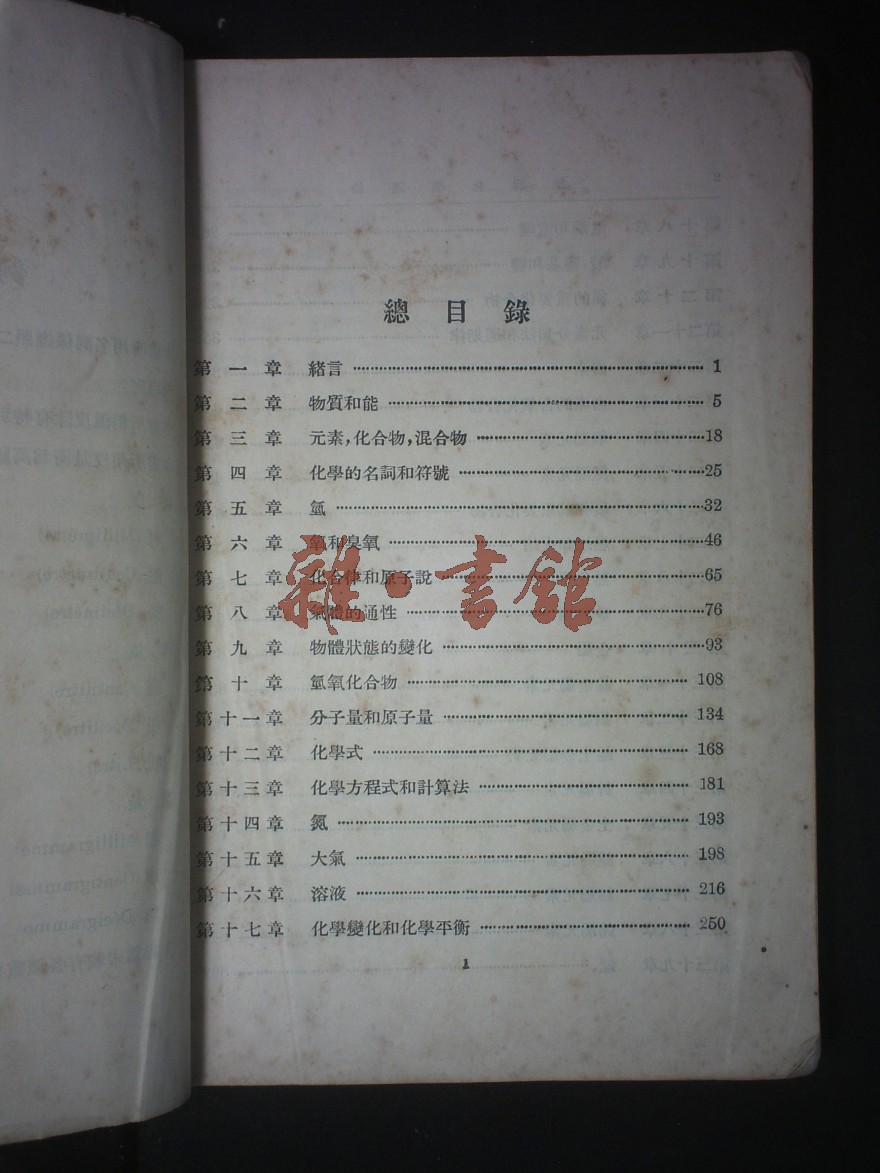 總目錄
第一章 緒言 1
第二章 物質和能 5
第三章 元素,化合物,混合物 18
第四章 化學的名詞和符號 25
第五章 氫 32
第六章 氧和臭氧 46
第七章 化合律和原子說 65
第八章 氣體的通性 76
第九章 物體狀態的變化 93
第十章 氫氧化合物 108
第十一章 分子量和原子量 134
第十二章 化學式 168
第十三章 化學方程式和計算法 181
第十四章 氮 193
第十五章 大氣 198
第十六章 溶液 216
第十七章 化學變化和化學平衡 250
1
雜·書館